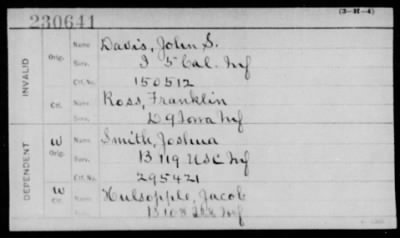 230641
(3-H-4)
INVALID
Orig.
Name Davis, John S.
Serv. I 5 Cal. Inf
Ctf. No. 150512
Ctf.
Name Ross, Franklin
Serv. D 9 Iowa Inf
DEPENDENT
W Orig.
Name Smith, Joshua
Serv. B 119 USC Inf
Ctf. No. 295421
W Ctf.
Name Hulsopple, Jacob
Serv. B 108 Inf